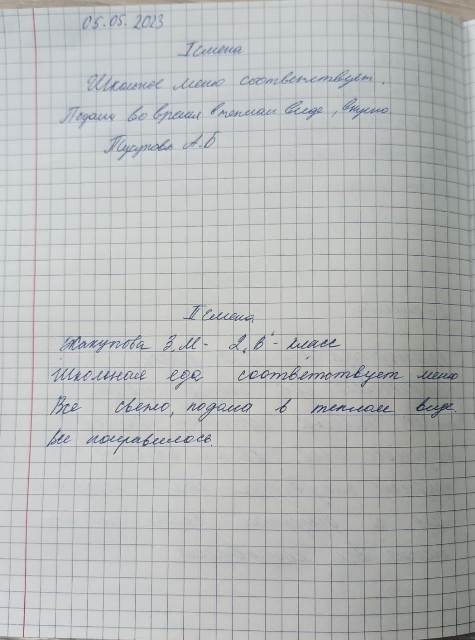 05.05.2023
I смена
Школьное меню соответствует.
Подача во время в теплом виде, вкусно.
А.Б
II смена
Жакупова З.М - 2 "В" - класс
Школьная еда соответствует меню
Все свежо, подача в теплом виде.
Все понравилось.